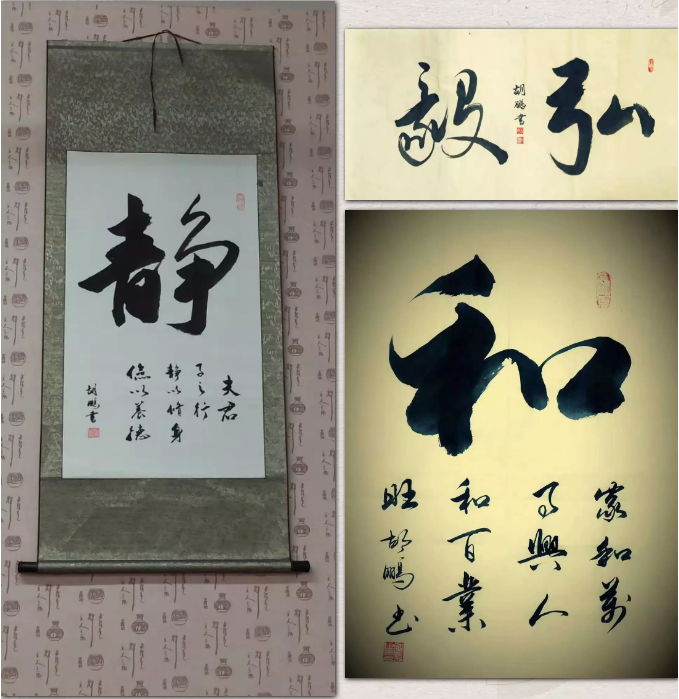 静
夫君
子之行
静以修身
俭以养德
胡鹏书
弘毅
胡鹏书
和
家和万
事興人
和百業
旺胡鹏书